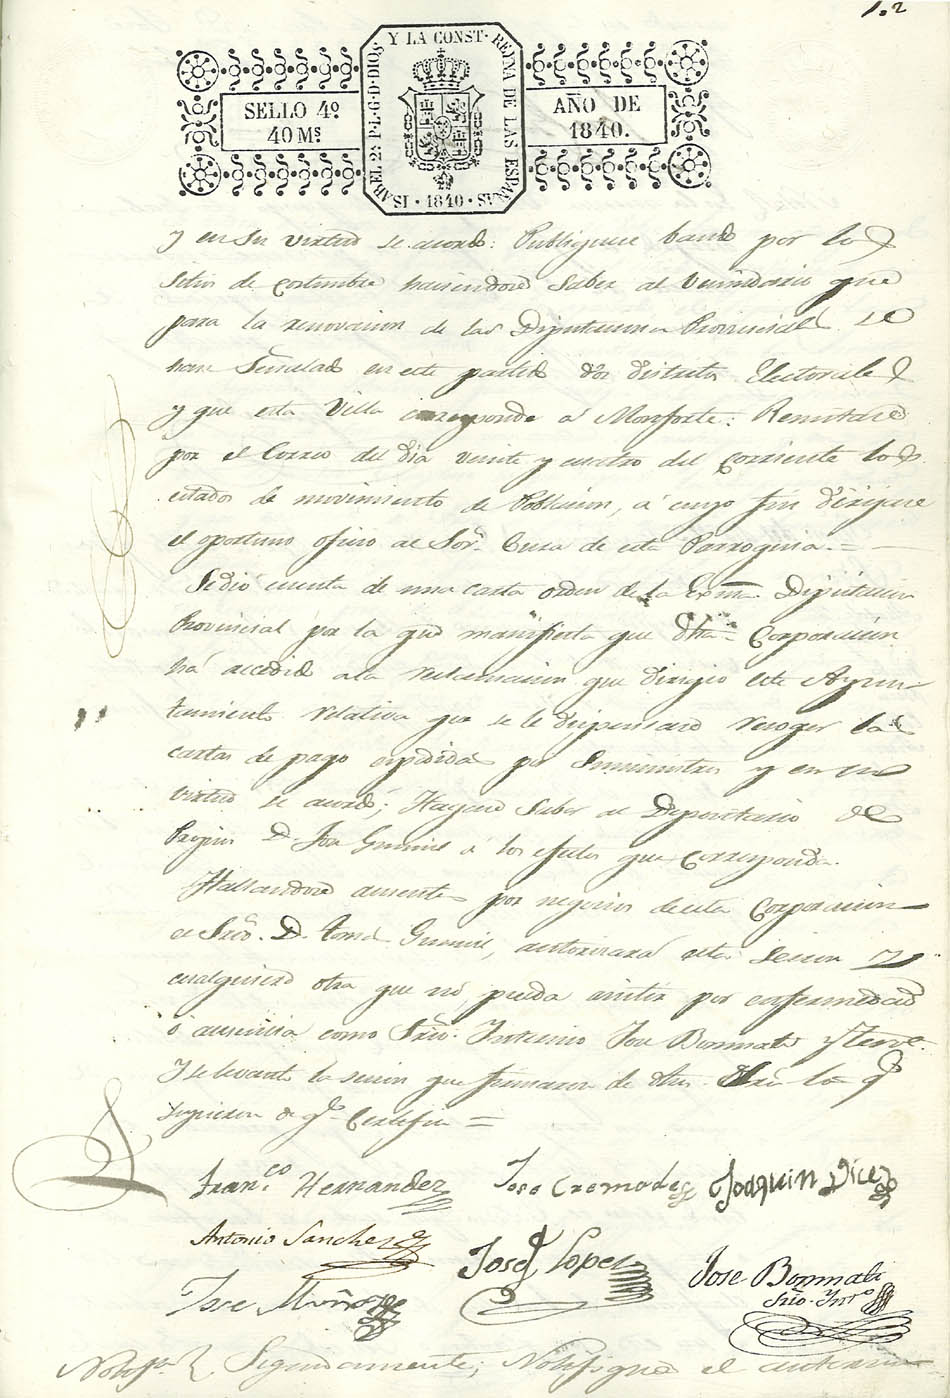 1.2
SELLO 4º
40 Mˢ.
ISABEL 2ª P.L.G.D. DIOS Y LA CONST. REYNA DE LAS ESPAÑAS
· 1840 ·
AÑO DE
1840.
y en su virtud se acordó: Publiquese bando por los
sitios de costumbre haciendose saber al Vecindario que
para la renovacion de las Diputaciones Provinciales se
han Señalado en este partido dos distritos Electorales
y que esta Villa corresponde á Monforte: Remitase
por el Correo del dia veinte y cuatro del corriente los
estados de movimiento de Poblacion, á cuyo fin dirijase
el oportuno oficio al Sor. Cura de esta Parroquia. =
Se dió cuenta de una carta orden de la Exma. Diputacion
Provincial por la que manifiesta que dha. Corporacion
há accedido a la reclamacion que dirigio este Ayun-
tamiento relativa que se le dispensase recoger las
cartas de pago espedidas por Suministros y en su
virtud se acordó; Hagase Saber al Depositario de
Propios D. José á los efectos que corresponda.
Hallandose ausente por negocios de esta Corporacion
el Srio. D. Tomas autorizará esta Sesion y
cualquiera otra que nó pueda asistir por enfermedad
ó ausencia como Srio. Interino Jose Bonmati
Y se levantó la sesion que firmaron de dhos. los q.
supieron de q. Certifico =
Franco. Hernandez Jose Cremades Joaquin Dicez
Antonio Sanchez
José Lopez
Jose Bonmati
Srio. Ynto.
Jose Muñoz
Seguidamente; Notifiqué el anterior